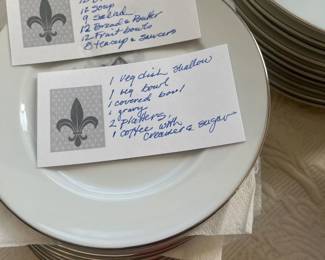 12 Soup
9 Salad
12 Bread & Butter
12 Fruit bowls
8 teacup & saucers
1 veg dish shallow
1 veg bowl
1 covered bowl
1 gravy
2 platters,
1 coffee with
creamer & sugar